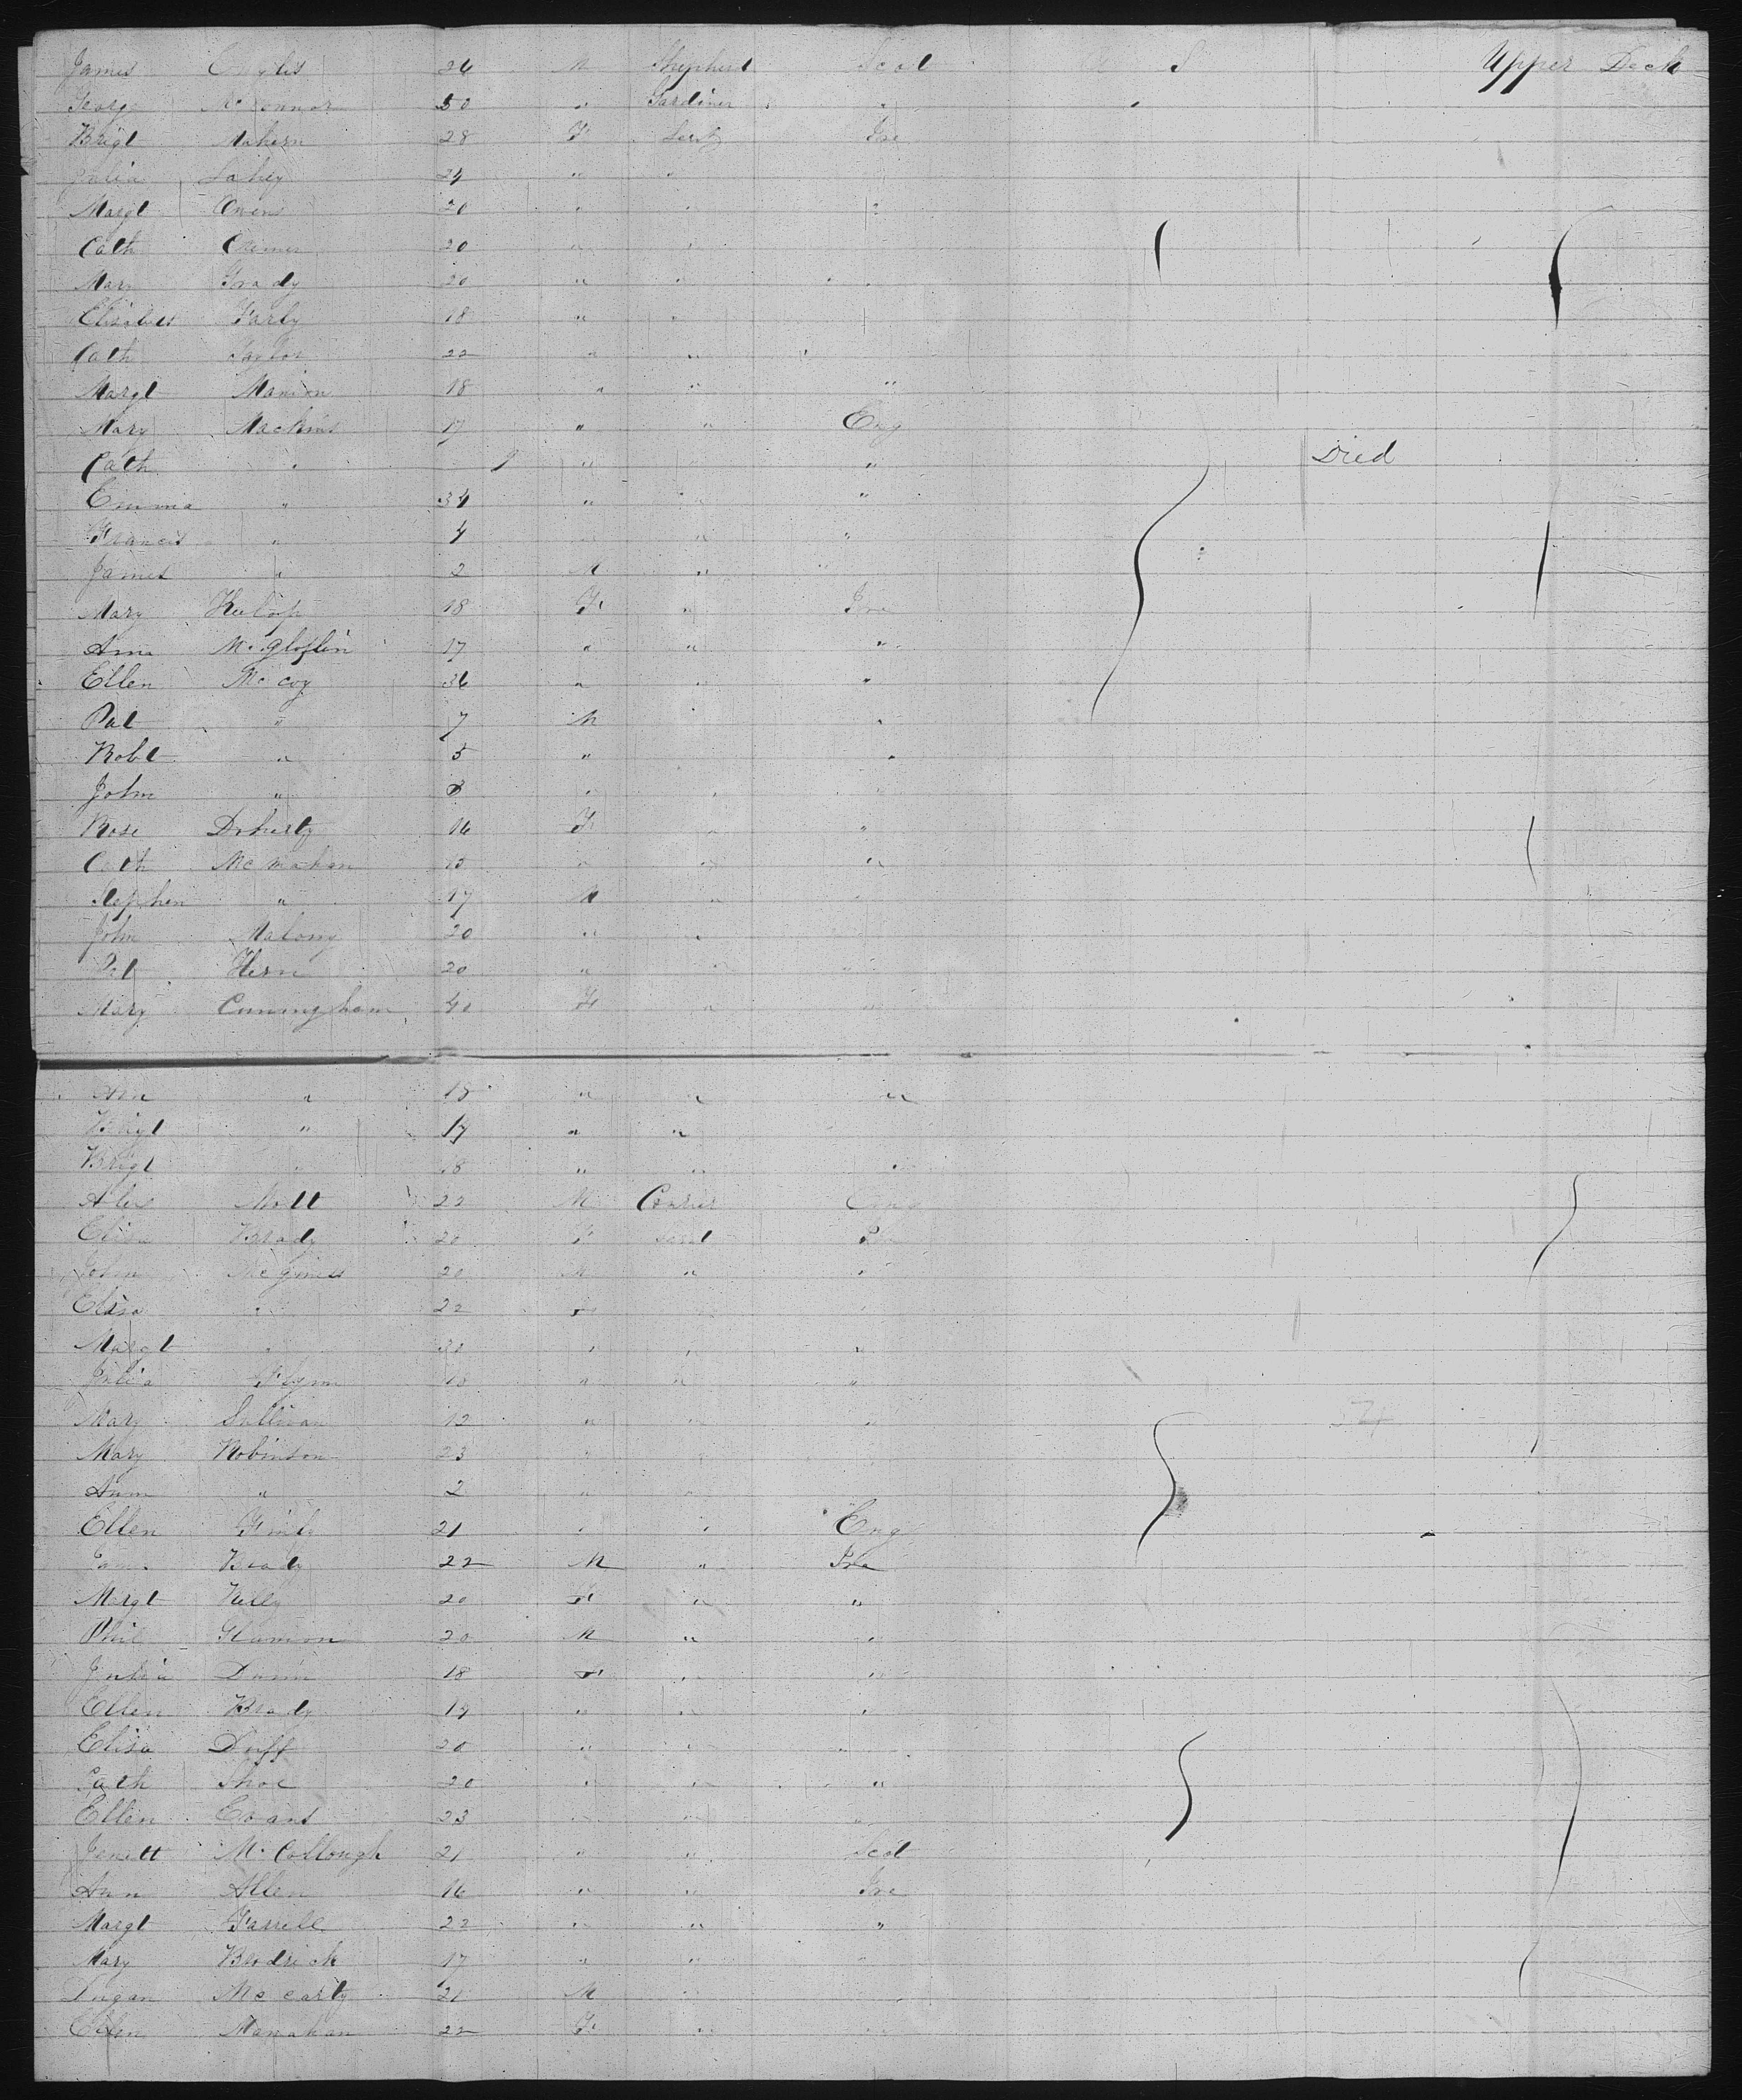 James 24 M Shepherd Scot U S Upper Deck
George McConnor 50 " Gardiner "
Brigt Mahern 28 F Servt Ire
Julia Lahey 24 " "
Margt Owens 20 " " "
Cath 20 " "
Mary Grady 20 " " "
Elisabeth Farly 18 " "
Cath Taylor 22 " " "
Margt Manion 18 " " "
Mary Mackins 17 " " Eng
Cath " 9 " " Died
Emma " 34 " " "
Francis " 4 " " "
James " 2 M " "
Mary 18 F " Ire
Ann McGloflin 17 " " "
Ellen McCoy 36 " " "
Pat " 7 M "
Robt " 5 " "
John " 3 " " "
Rose Doherty 16 F " "
Cath McMahan 15 " " "
Stephen " 17 M " "
John Malony 20 " "
Pat Hern 20 " " "
Mary Cunningham 40 F " "
Ann " 15 " " "
Brigt " 17 " "
Brigt " 18 " " "
Alex Mott 22 M Eng
Elisa Brady 20 F Servt Ire
John McGiness 20 M " "
Elisa " 22 F
Margt " " " "
Julia Flynn 18 " " "
Mary Sullivan 12 " " "
Mary Robinson 23 "
Ann " 2 " "
Ellen 21 " " Eng
Brady 22 M " Ire
Margt Kelly 20 F " "
Phil 20 M " "
Julia Dunn 18 F " "
Ellen Brady 19 " " "
Elisa Duff 20 " " "
Cath 20 " " "
Ellen Evans 23 " " "
Jenett McCollough 21 " " Scot
Ann Allen 16 " " Ire
Margt Farrell 22 " " "
Mary 17 " " "
Dugan McCarty 21 M " "
Ellen Manahan 22 F " "